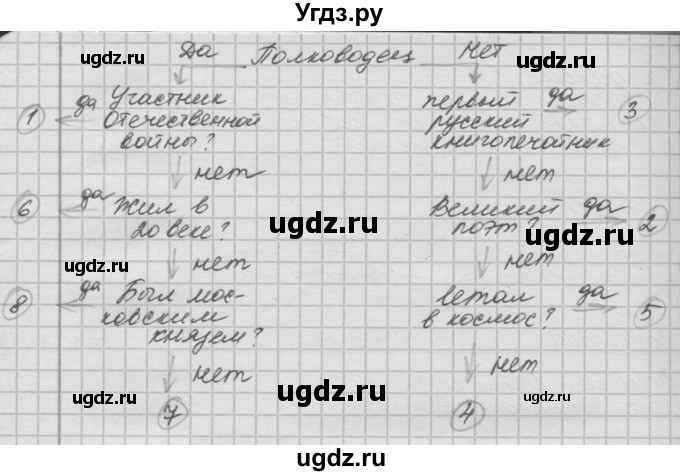 Угдз.ру
Да Полководец Нет
да Участник Отечественной войны? 1
первый русский книгопечатник да 3
нет нет
да Жил в 20 веке? 6
Великий поэт? да 2
нет нет
да Был московским князем? 8
летал в космос? да 5
нет
7 4
ugdz.ru ugdz.ru
ugdz.ru ugdz.ru ugdz.ru
ugdz.ru ugdz.ru ugdz.ru
ugdz.ru ugdz.ru
ugdz.ru ugdz.ru ugdz.ru
ugdz.ru